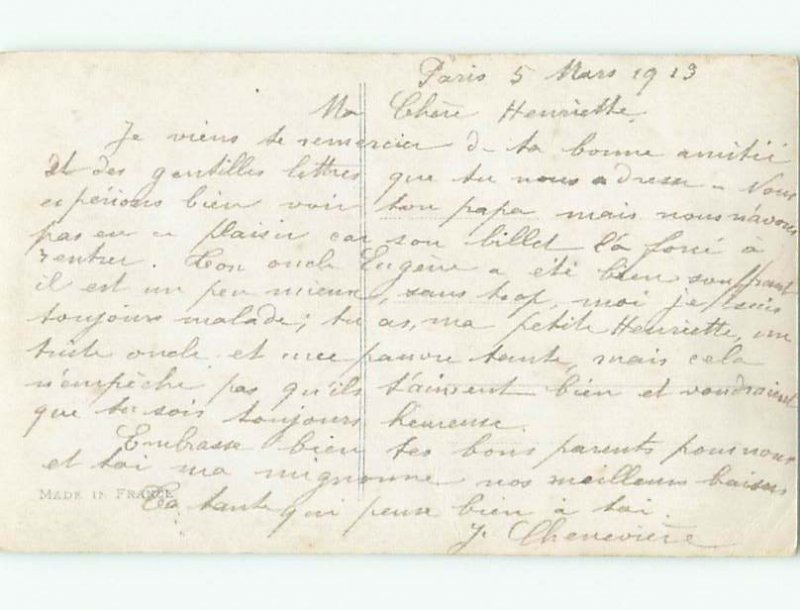 Paris 5 Mars 1913
Ma Chère Henriette
Je viens te remercier de ta bonne amitié
et des gentilles lettres que tu nous adresse. Nous
espérions bien voir ton papa mais nous n'avons
pas eu ce plaisir car son billet l'a forcé à
rentrer. Ton oncle Eugène a été bien souffrant
il est un peu mieux, sans trop, moi je suis
toujours malade; tu as, ma petite Henriette, un
triste oncle et une pauvre tante, mais cela
n'empêche pas qu'ils t'aiment bien et voudraient
que tu sois toujours heureuse.
Embrasse bien tes bons parents pour nous
et toi ma mignonne nos meilleurs baisers
MADE IN FRANCE
Ta tante qui pense bien à toi.
J. Chenevière